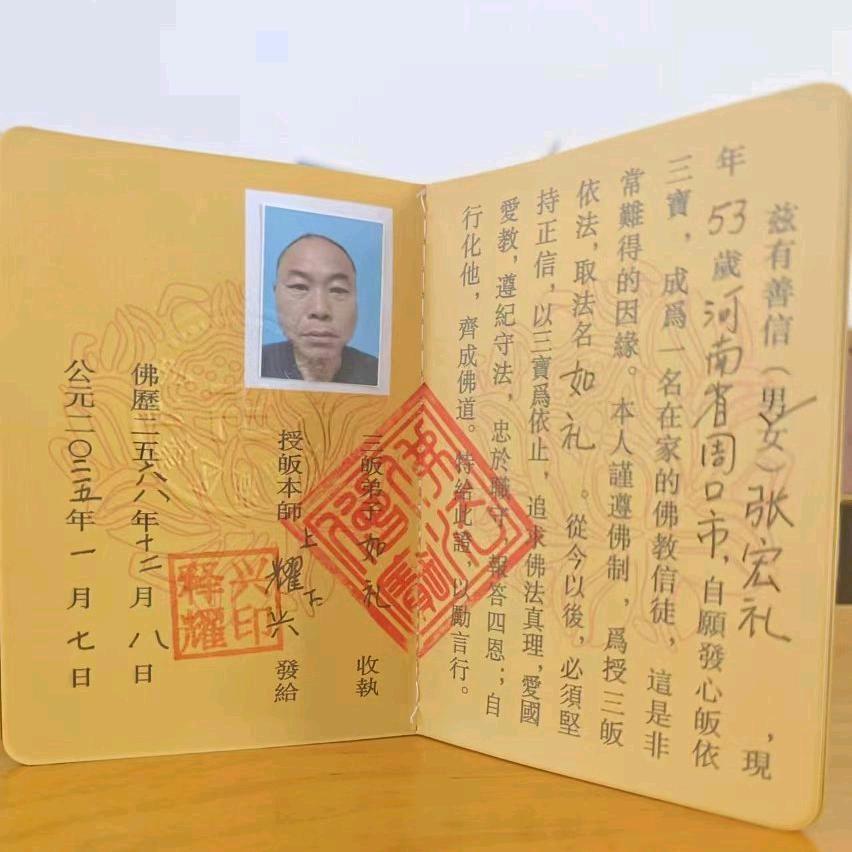 茲有善信（男女）张宏礼，現
年53歲河南省周口市,自願發心皈依
三寶，成爲一名在家的佛教信徒，這是非
常難得的因緣。本人謹遵佛制，爲授三皈
依法,取法名如礼。從今以後，必須堅
持正信，以三寶爲依止，追求佛法真理，愛國
愛教，遵紀守法，忠於職守，報答四恩；自
行化他，齊成佛道。特給此證，以勵言行。
佛法僧寶
三皈弟子如礼 收執
授皈本師上耀下兴 發給
兴印
释耀
佛歷二五六八年十二月八日
公元二〇二五年一月七日